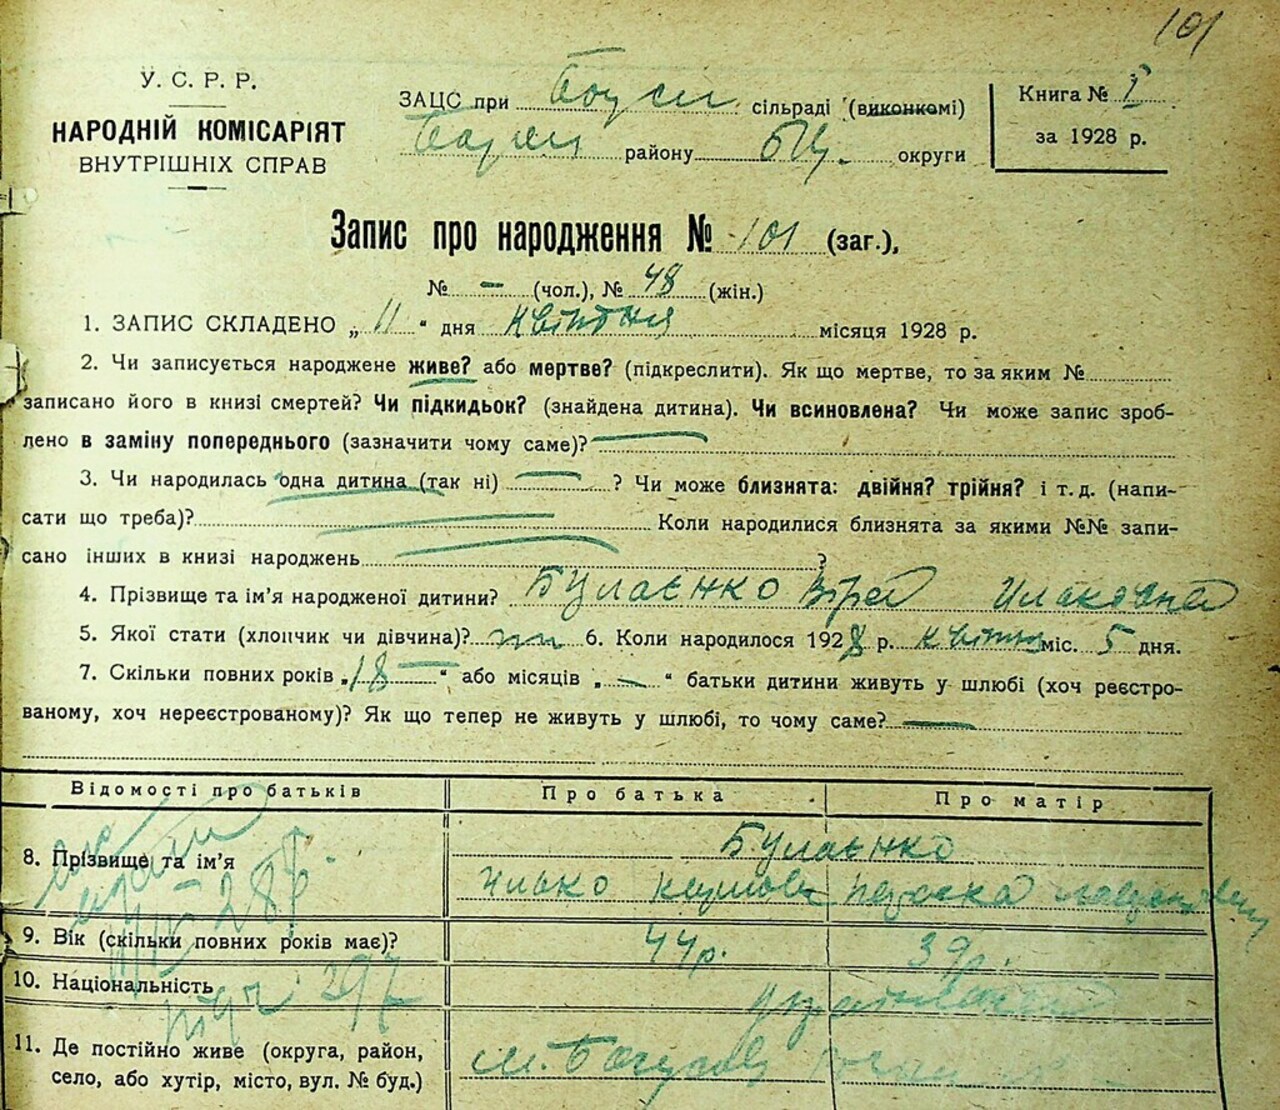 101
У. С. Р. Р.
НАРОДНІЙ КОМІСАРІЯТ
ВНУТРІШНІХ СПРАВ
ЗАЦС при сільраді (виконкомі)
району БЦ. округи
Книга № I
за 1928 р.
Запис про народження № 101 (заг.),
№ – (чол.), № 48 (жін.)
1. ЗАПИС СКЛАДЕНО „ 11 “ дня квітня місяця 1928 р.
2. Чи записується народжене живе? або мертве? (підкреслити). Як що мертве, то за яким №
записано його в книзі смертей? Чи підкидьок? (знайдена дитина). Чи всиновлена? Чи може запис зроб-
лено в заміну попереднього (зазначити чому саме)?
3. Чи народилась одна дитина (так ні) ? Чи може близнята: двійня? трійня? і т. д. (напи-
сати що треба)? Коли народилися близнята за якими №№ запи-
сано інших в книзі народжень ?
4. Прізвище та ім’я народженої дитини? Булаєнко
5. Якої стати (хлопчик чи дівчина)? 6. Коли народилось 1928 р. квітня міс. 5 дня.
7. Скільки повних років „ 18 “ або місяців „ – “ батьки дитини живуть у шлюбі (хоч реєстро-
ваному, хоч нереєстрованому)? Як що тепер не живуть у шлюбі, то чому саме? —
Відомості про батьків Про батька Про матір
8. Прізвище та ім’я Булаєнко
Илько
9. Вік (скільки повних років має)? 44 р. 39 р.
10. Національність
11. Де постійно живе (округа, район,
село, або хутір, місто, вул. № буд.) м.